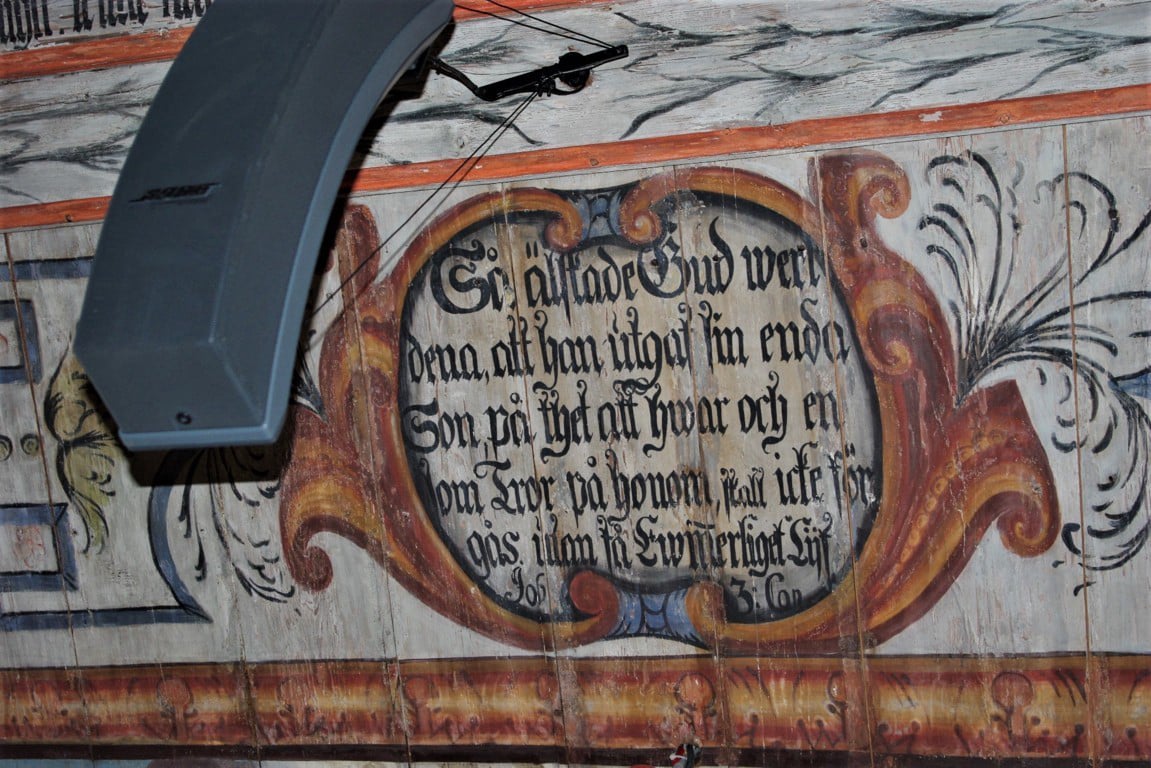 BOSE
Så älskade Gud werl
dena, att han utgaf sin enda
Son, på thet att hwar och en
som Tror på honom, skall icke för
gås, utan få Ewinnerliget Lijf
Joh 3: Cap